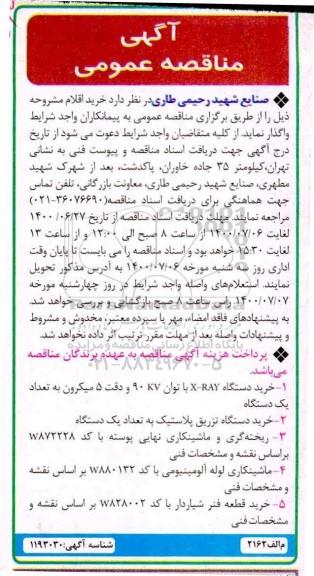 آگهی
مناقصه عمومی
صنایع شهید رحیمی طاری در نظر دارد خرید اقلام مشروحه
ذیل را از طریق برگزاری مناقصه عمومی به پیمانکاران واجد شرایط
واگذار نماید. از کلیه متقاضیان واجد شرایط دعوت می شود از تاریخ
درج آگهی جهت دریافت اسناد مناقصه و پیوست فنی به نشانی
تهران،کیلومتر ۳۵ جاده خاوران، پاکدشت، بعد از شهرک شهید
مطهری، صنایع شهید رحیمی طاری، معاونت بازرگانی، تلفن تماس
جهت هماهنگی برای دریافت اسناد مناقصه(۳۶۰۷۶۶۹۰-۰۲۱)
مراجعه نمایند. مهلت دریافت اسناد مناقصه از تاریخ ۱۴۰۰/۰۶/۲۷
لغایت ۱۴۰۰/۰۷/۰۶ از ساعت ۸ صبح الی ۱۲:۰۰ و از ساعت ۱۳
لغایت ۱۵:۳۰ خواهد بود و اسناد مناقصه را می بایست تا پایان وقت
اداری روز سه شنبه مورخه ۱۴۰۰/۰۷/۰۶ به آدرس مذکور تحویل
نمایند. استعلام‌های واصله واجد شرایط در روز چهارشنبه مورخه
۱۴۰۰/۰۷/۰۷ راس ساعت ۸ صبح بازگشایی و بررسی خواهد شد.
به پیشنهادهای فاقد امضاء، مهر یا سپرده معتبر، مخدوش و مشروط و
و پیشنهادات واصله بعد از مهلت مقرر ترتیب اثر داده نخواهد شد.
پرداخت هزینه آگهی مناقصه به عهده برندگان مناقصه
می‌باشد.
۱-خرید دستگاه X-RAY با توان ۹۰ KV و دقت ۵ میکرون به تعداد
یک دستگاه
۲-خرید دستگاه تزریق پلاستیک به تعداد یک دستگاه
۳- ریخته‌گری و ماشینکاری نهایی پوسته با کد W۸۷۲۲۲۸
براساس نقشه و مشخصات فنی
۴-ماشینکاری لوله آلومینیومی با کد W۸۸۰۱۳۲ بر اساس نقشه
و مشخصات فنی
۵- خرید قطعه فنر شیاردار با کد W۸۲۸۰۰۲ بر اساس نقشه و
مشخصات فنی
م/الف۲۱۶۲
شناسه آگهی:۱۱۹۳۰۳۰
پایگاه اطلاع رسانی مناقصه و مزایده
۰۲۱-۸۸۳۴۹۶۷۰-۵